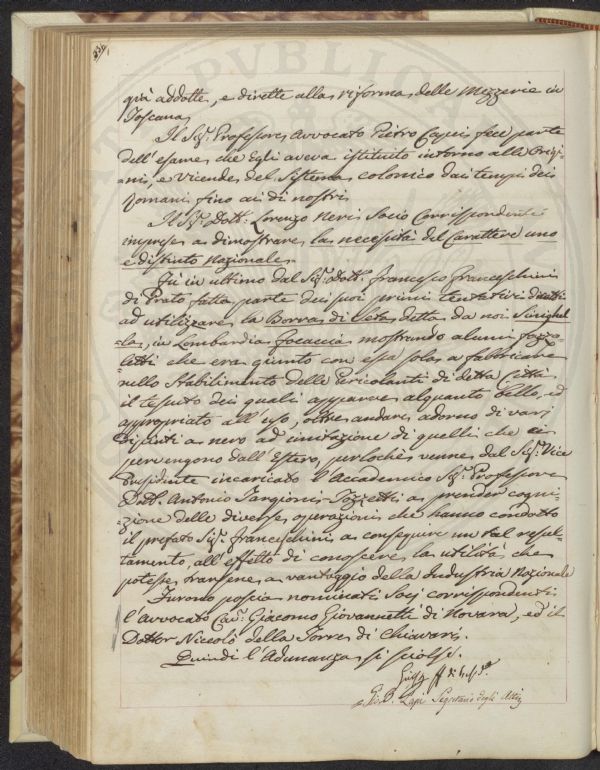 già addotte, e dirette alla riforma delle Mezzerie in
Toscana
Il Sig. Professore Avvocato Pietro Capei fece parte
dell'esame che Egli aveva istituito intorno alle Origi-
=ni, e vicende del Sistema colonico dai tempi dei
Romani fino ai dì nostri
Il Sig. Dott. Lorenzo Neri Socio Corrispondente
imprese a dimostrare la necessità del Carattere uno
e distinto Nazionale
Fu in ultimo dal Sig. Dott. Francesco Franceschini
di Prato fatta parte dei suoi primi tentativi diretti
ad utilizzare la Borra di Seta detta da noi Sinighel-
la, in Lombardia focaccia mostrando alcuni fazzo-
letti che era giunto con essa sola a fabbricare
nello Stabilimento delle Pericolanti di detta Città
il tessuto dei quali apparve alquanto bello, ed
appropriato all'uso, oltre andare, adorno di varj
dipinti a nero ad imitazione di quelli che ci
pervengono dall'Estero, perlochè venne dal Sig. Vice
Presidente incaricato l'Accademico Sig. Professore
Dott. Antonio Targioni-Tozzetti a prender cogni
=zione delle diverse operazioni che hanno condotto
il prefato Sig. Franceschini a conseguire un tal resul-
tamento, all'effetto di conoscere la utilità che
potesse trarsene a vantaggio della Industria Nazionale
Furono poscia nominati Socj corrispondenti
l'Avvocato Cav. Giacomo Giovannetti di Novara, ed il
Dottor Niccolò della Torre di Chiavari.
Quindi l'Adunanza si sciolse.
Segretario degli Atti